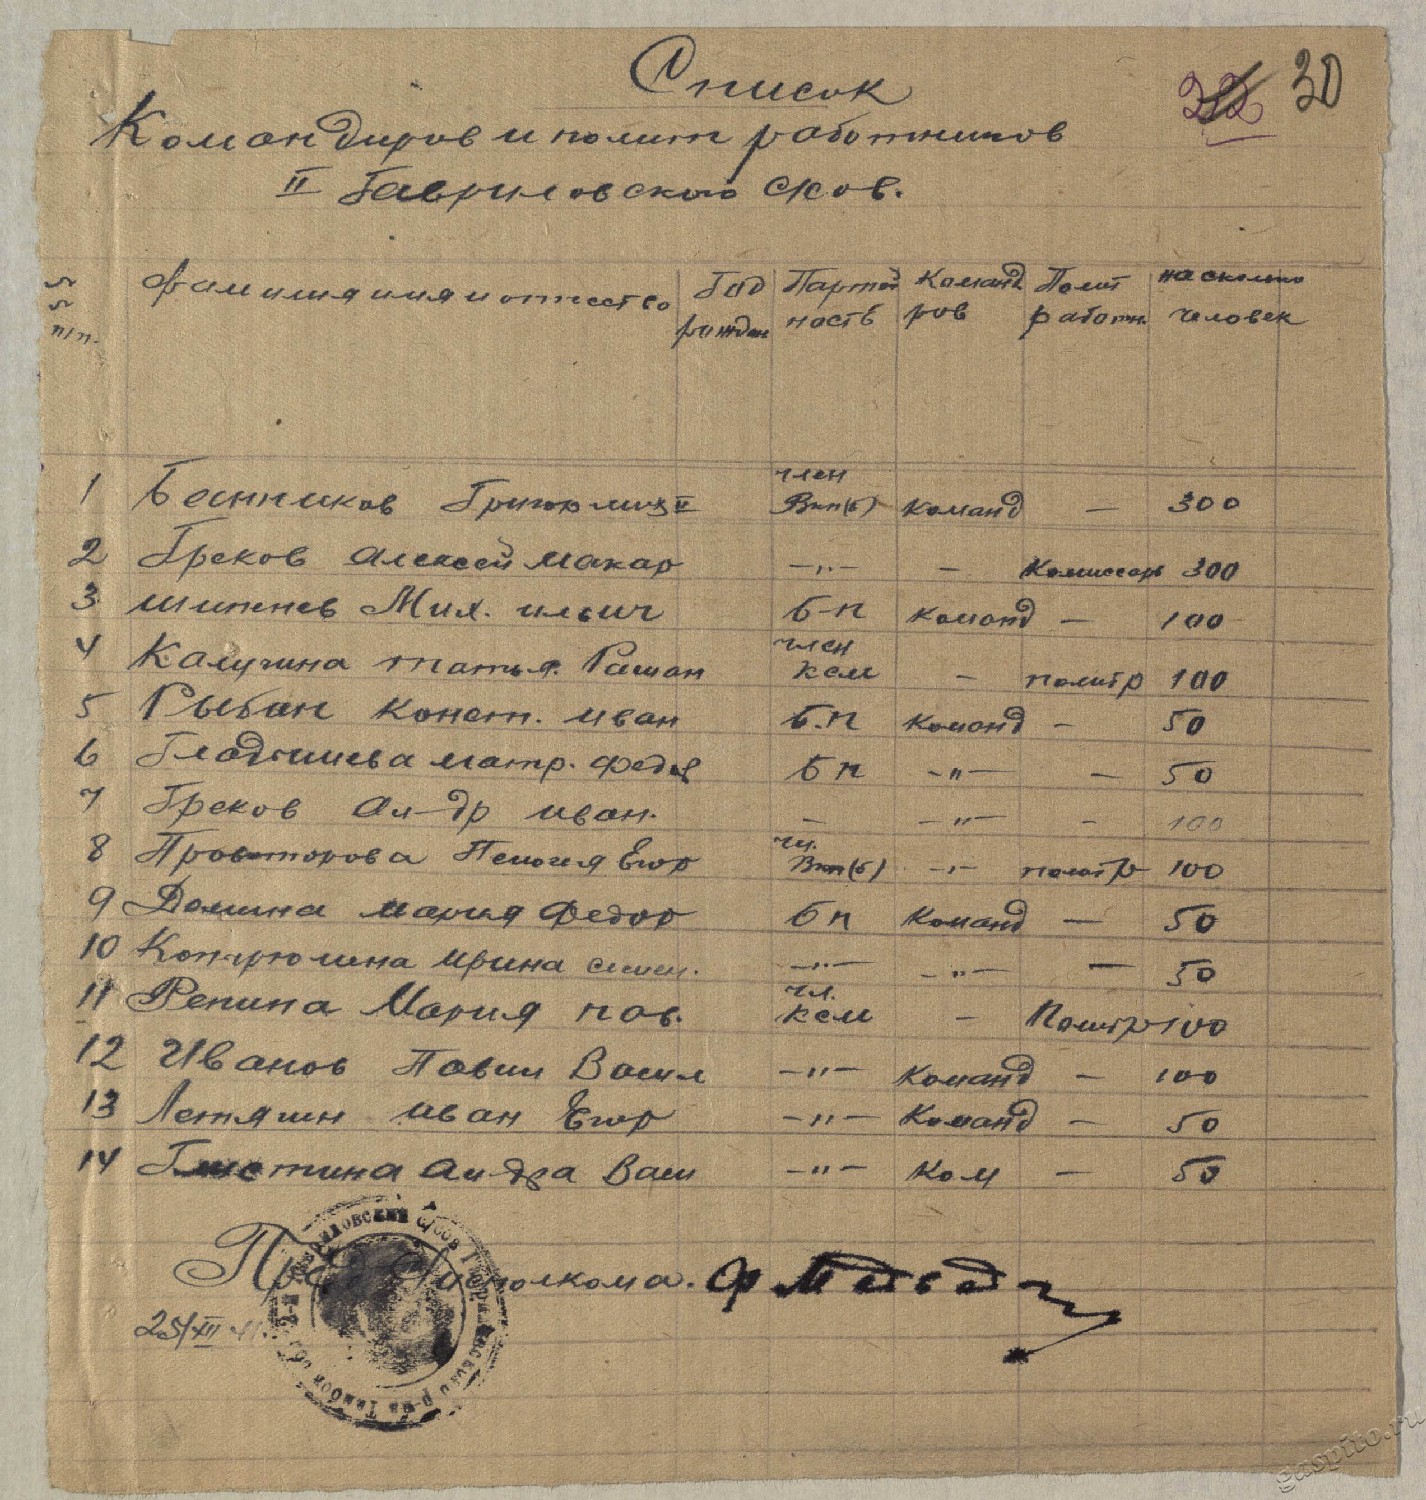 Список
32 30
Командиров и полит работников
II Гавриловского с/сов.
№ № п/п. фамилия имя и отчество Год рожден Партой ность Команд ров Полит работн. на сколько человек
1 Григор II член Вкп(б) Команд — 300
2 Греков Алексей Макар —"— — Комиссар 300
3 Мих. Ильич Б-п Команд — 100
4 Калугина Татья. Роман член Ксм — политр 100
5 Рыбан Конст. Иван Б.п Команд — 50
6 Гладышева Матр. Федор Б п —"— — 50
7 Греков Ал-др Иван. — —"— — 100
8 Провоторова Пелогия Егор чл. Вкп(б) —"— политр 100
9 Демина Мария Федор Б п Команд — 50
10 Ирина Семен. —"— —"— — 50
11 Репина Мария Пав. чл. Ксм — Политр 100
12 Иванов Павил Васил —"— Команд — 100
13 Летяшин Иван Егор —"— Команд — 50
14 Ал-дра Васи —"— Ком — 50
Пред Исполкома. Ф Медвед
25/XII 41.
gaspito.ru